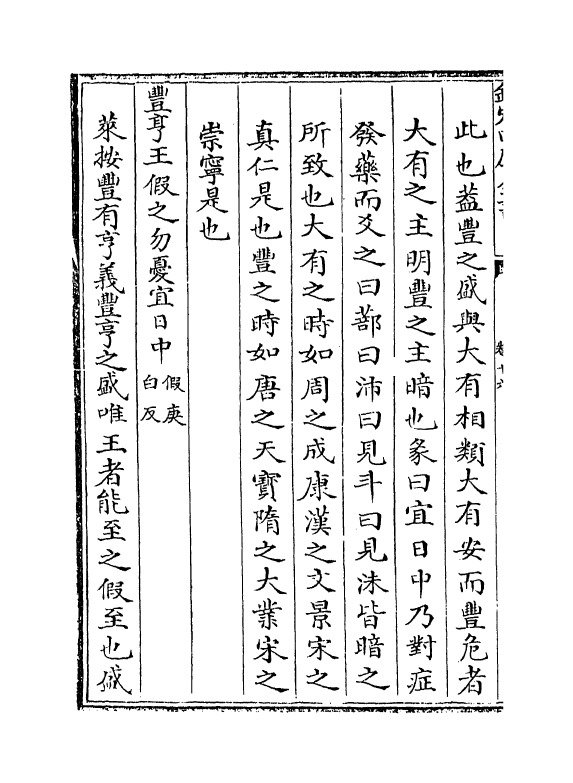 此也葢豐之盛與大有相類大有安而豐危者
大有之主明豐之主暗也彖曰宜日中乃對症
發藥而爻之曰蔀曰沛曰見斗曰見沬皆暗之
所致也大有之時如周之成康漢之文景宋之
真仁是也豐之時如唐之天寳隋之大業宋之
崇寧是也
豐亨王假之勿憂宜日中假庚白反
萊按豐有亨義豐亨之盛唯王者能至之假至也盛